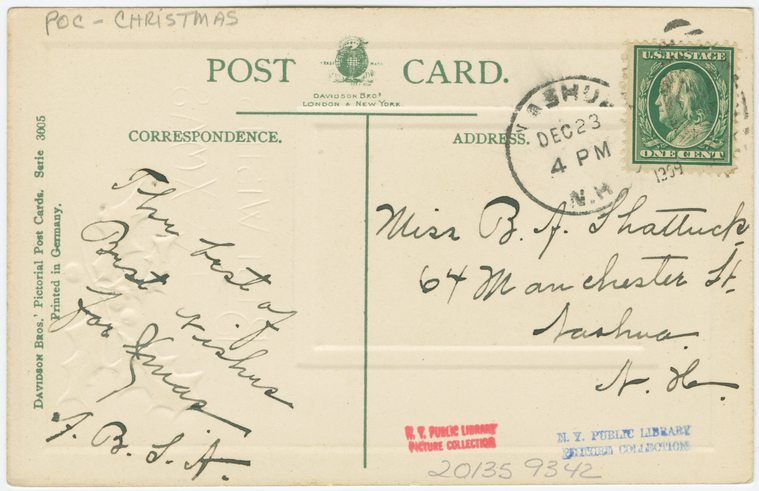 POC - CHRISTMAS
POST CARD.
DAVIDSON BROS.
LONDON & NEW YORK.
U.S. POSTAGE
ONE CENT
NASHUA
DEC 23
4 PM
N.H.
1909
CORRESPONDENCE.
ADDRESS.
DAVIDSON BROS.' Pictorial Post Cards. Serie 3005
Printed in Germany.
The best of
Best Wishes
for Xmas
Miss B. A. Shattuck
64 Manchester St.
Nashua
N. H.
N. Y. PUBLIC LIBRARY
PICTURE COLLECTION
N. Y. PUBLIC LIBRARY
PICTURE COLLECTION
20135 9342